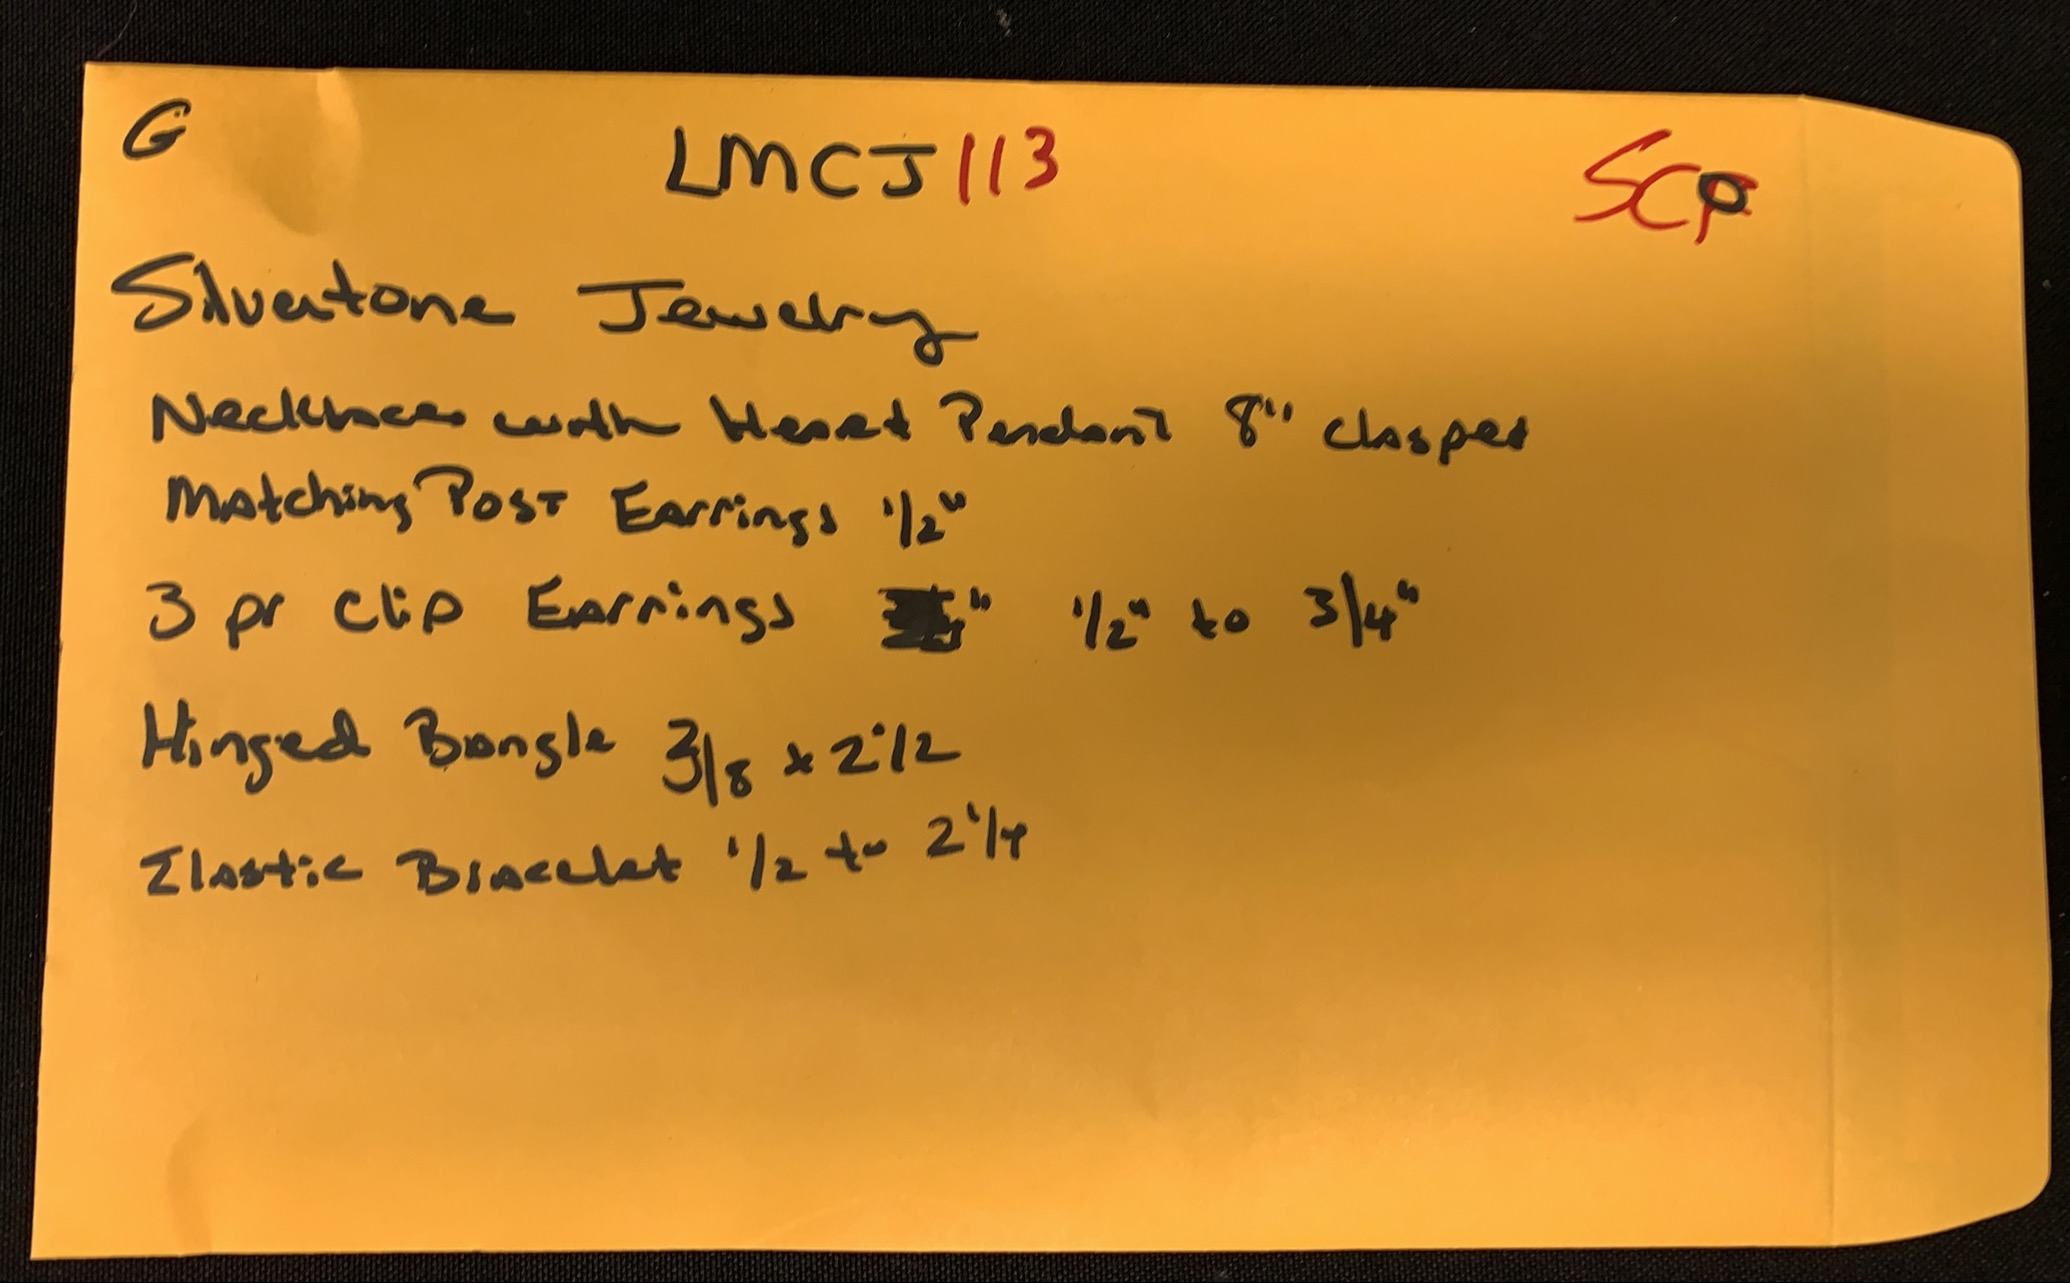 G LMCJ113 SCP
Silvertone Jewelry
Necklace with Heart Pendant 8" clasped
Matching Post Earrings 1/2"
3 pr Clip Earrings " 1/2" to 3/4"
Hinged Bangle 3/8 x 2 1/2
Elastic Bracelet 1/2 to 2 1/4